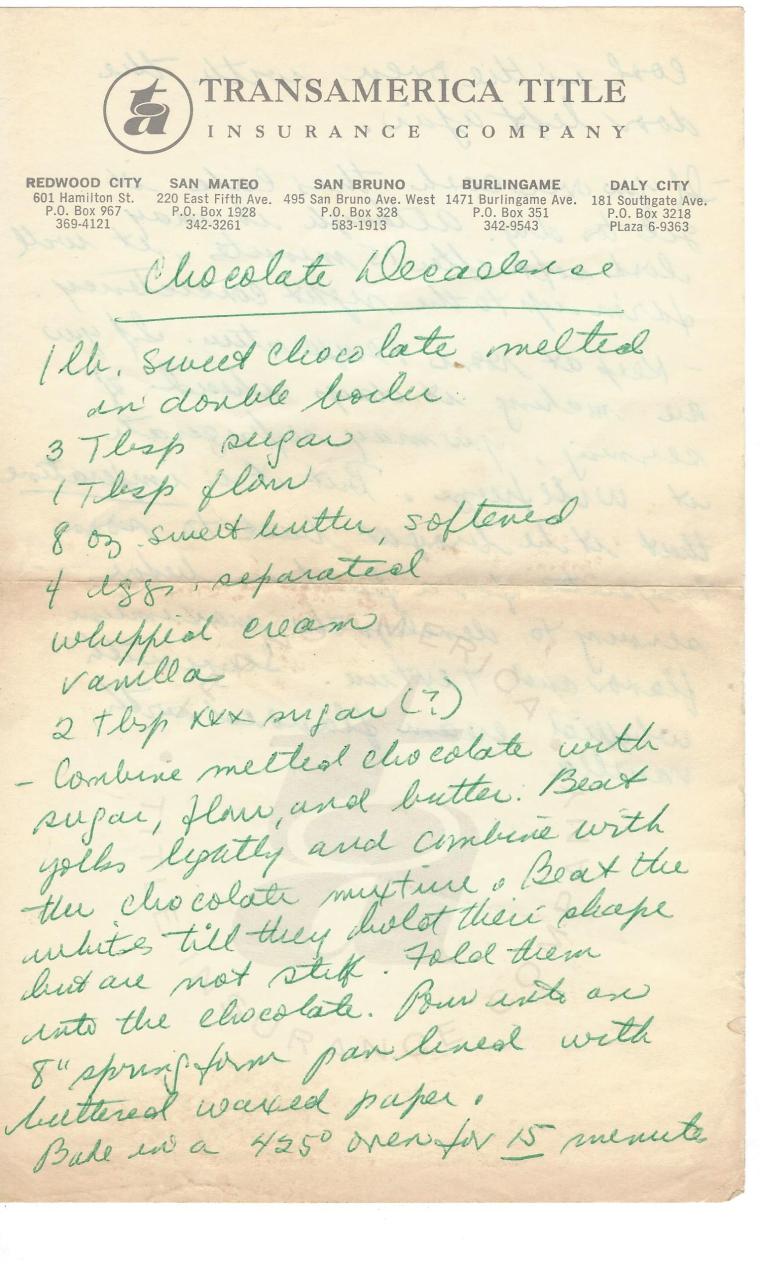 ta
TRANSAMERICA TITLE
INSURANCE COMPANY
REDWOOD CITY
601 Hamilton St.
P.O. Box 967
369-4121
SAN MATEO
220 East Fifth Ave.
P.O. Box 1928
342-3261
SAN BRUNO
495 San Bruno Ave. West
P.O. Box 328
583-1913
BURLINGAME
1471 Burlingame Ave.
P.O. Box 351
342-9543
DALY CITY
181 Southgate Ave.
P.O. Box 3218
PLaza 6-9363
Chocolate Decadense
1 lb. sweet chocolate melted
in double boiler
3 Tbsp sugar
1 Tbsp flour
8 oz. sweet butter, softened
4 eggs, separated
whipped cream
vanilla
2 tbsp xxx sugar (?)
- Combine melted chocolate with
sugar, flour, and butter. Beat
yolks lightly and combine with
the chocolate mixture. Beat the
whites till they hold their shape
but are not stiff. Fold them
into the chocolate. Pour into an
8" springform pan lined with
buttered waxed paper.
Bake in a 425° oven for 15 minutes